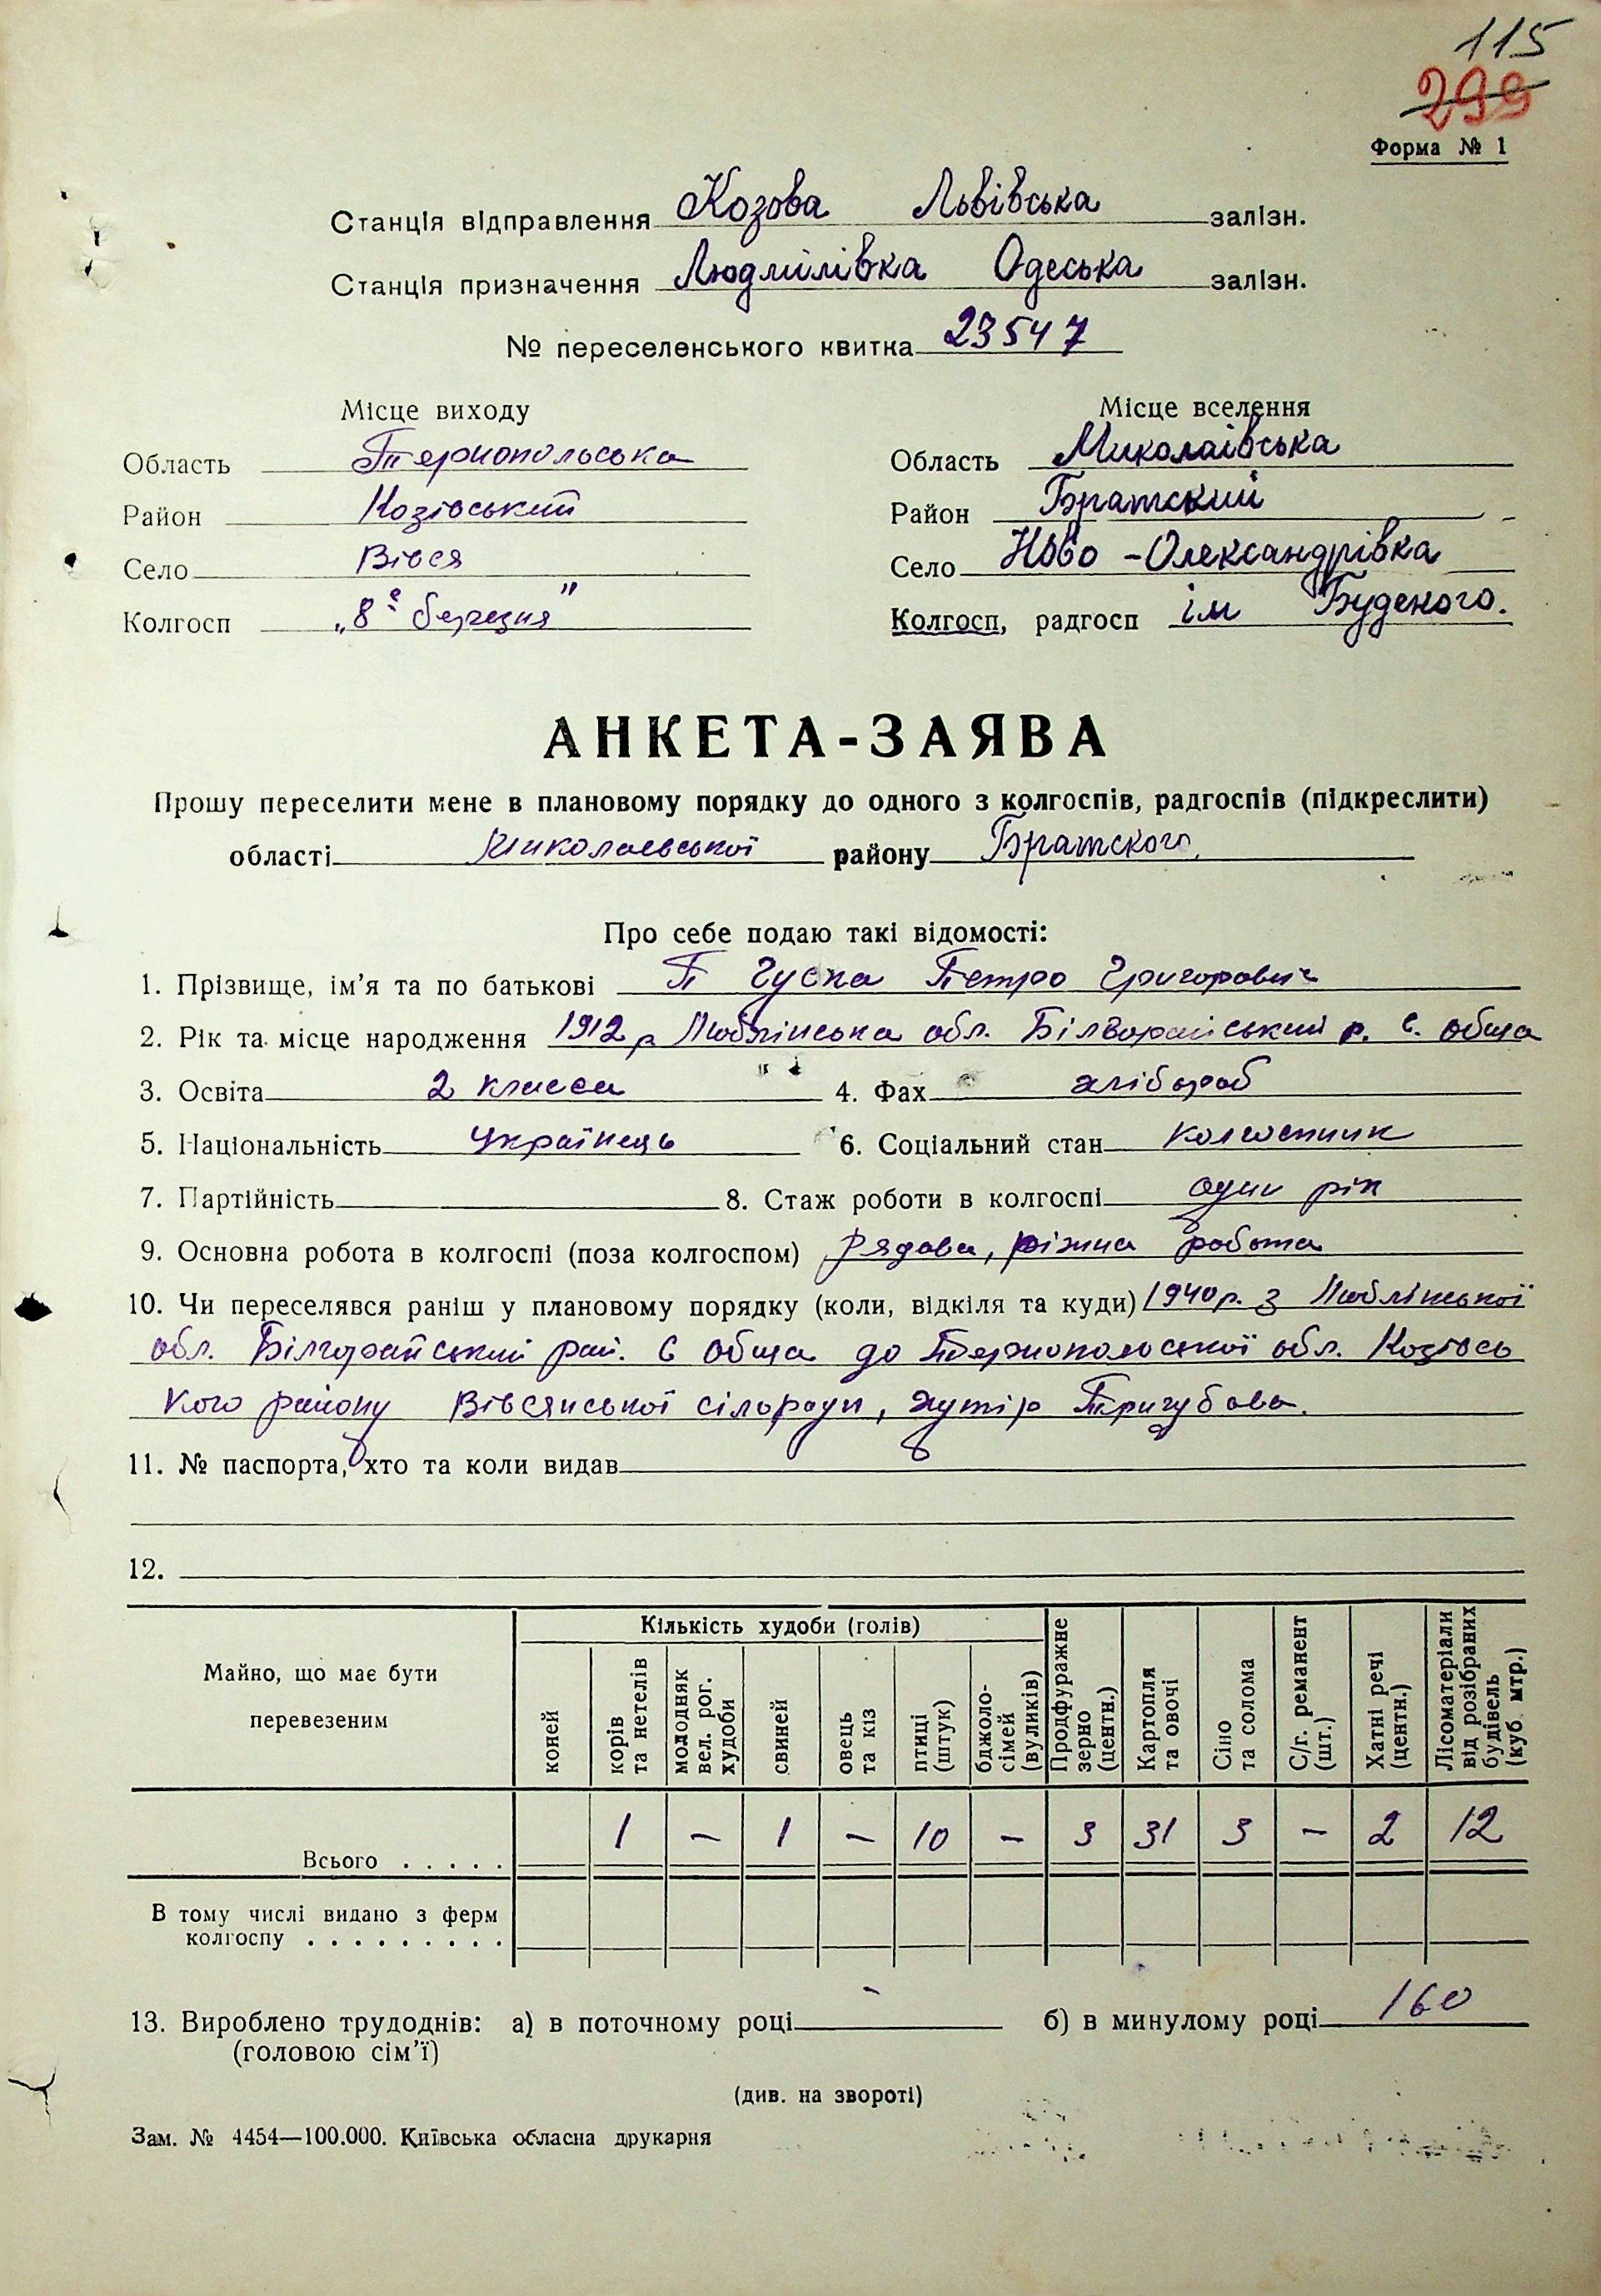 115
299
Форма № 1
Станція відправлення Козова Львівська залізн.
Станція призначення Людмилівка Одеська залізн.
№ переселенського квитка 23547
Місце виходу
Область Тернопольська
Район Козівський
Село Вівся
Колгосп „8е березня"
Місце вселення
Область Миколаівська
Район Братский
Село Ново-Олександрівка
Колгосп, радгосп ім Буденого.
АНКЕТА-ЗАЯВА
Прошу переселити мене в плановому порядку до одного з колгоспів, радгоспів (підкреслити)
області Миколаевської району Братского
Про себе подаю такі відомості:
1. Прізвище, ім'я та по батькові Гуска Петро Григорович
2. Рік та місце народження 1912 р Люблінська обл. Білгорайський р. с. обша
3. Освіта 2 класса 4. Фах хлібороб
5. Національність Українець 6. Соціальний стан колгоспник
7. Партійність 8. Стаж роботи в колгоспі один рік
9. Основна робота в колгоспі (поза колгоспом) рядова, різна робота
10. Чи переселявся раніш у плановому порядку (коли, відкіля та куди) 1940 р. з Люблінської
обл. Білгорайський рай. с обша до Тернопольської обл. Козівсь
кого району Вівсянської сільради, хутір Тригубова.
11. № паспорта, хто та коли видав
12.
Майно, що має бути перевезеним
Кількість худоби (голів)
коней
корів та нетелів
молодняк вел. рог. худоби
свиней
овець та кіз
птиці (штук)
бджоло-сімей (вуликів)
Продфуражне зерно (центн.)
Картопля та овочі
Сіно та солома
С/г. реманент (шт.)
Хатні речі (центн.)
Лісоматеріали від розібраних будівель (куб. мтр.)
Всього . . . . . 1 – 1 – 10 – 3 31 3 – 2 12
В тому числі видано з ферм
колгоспу . . . . . . . . .
13. Вироблено трудоднів: а) в поточному році – б) в минулому році 160
(головою сім'ї)
(див. на звороті)
Зам. № 4454—100.000. Київська обласна друкарня